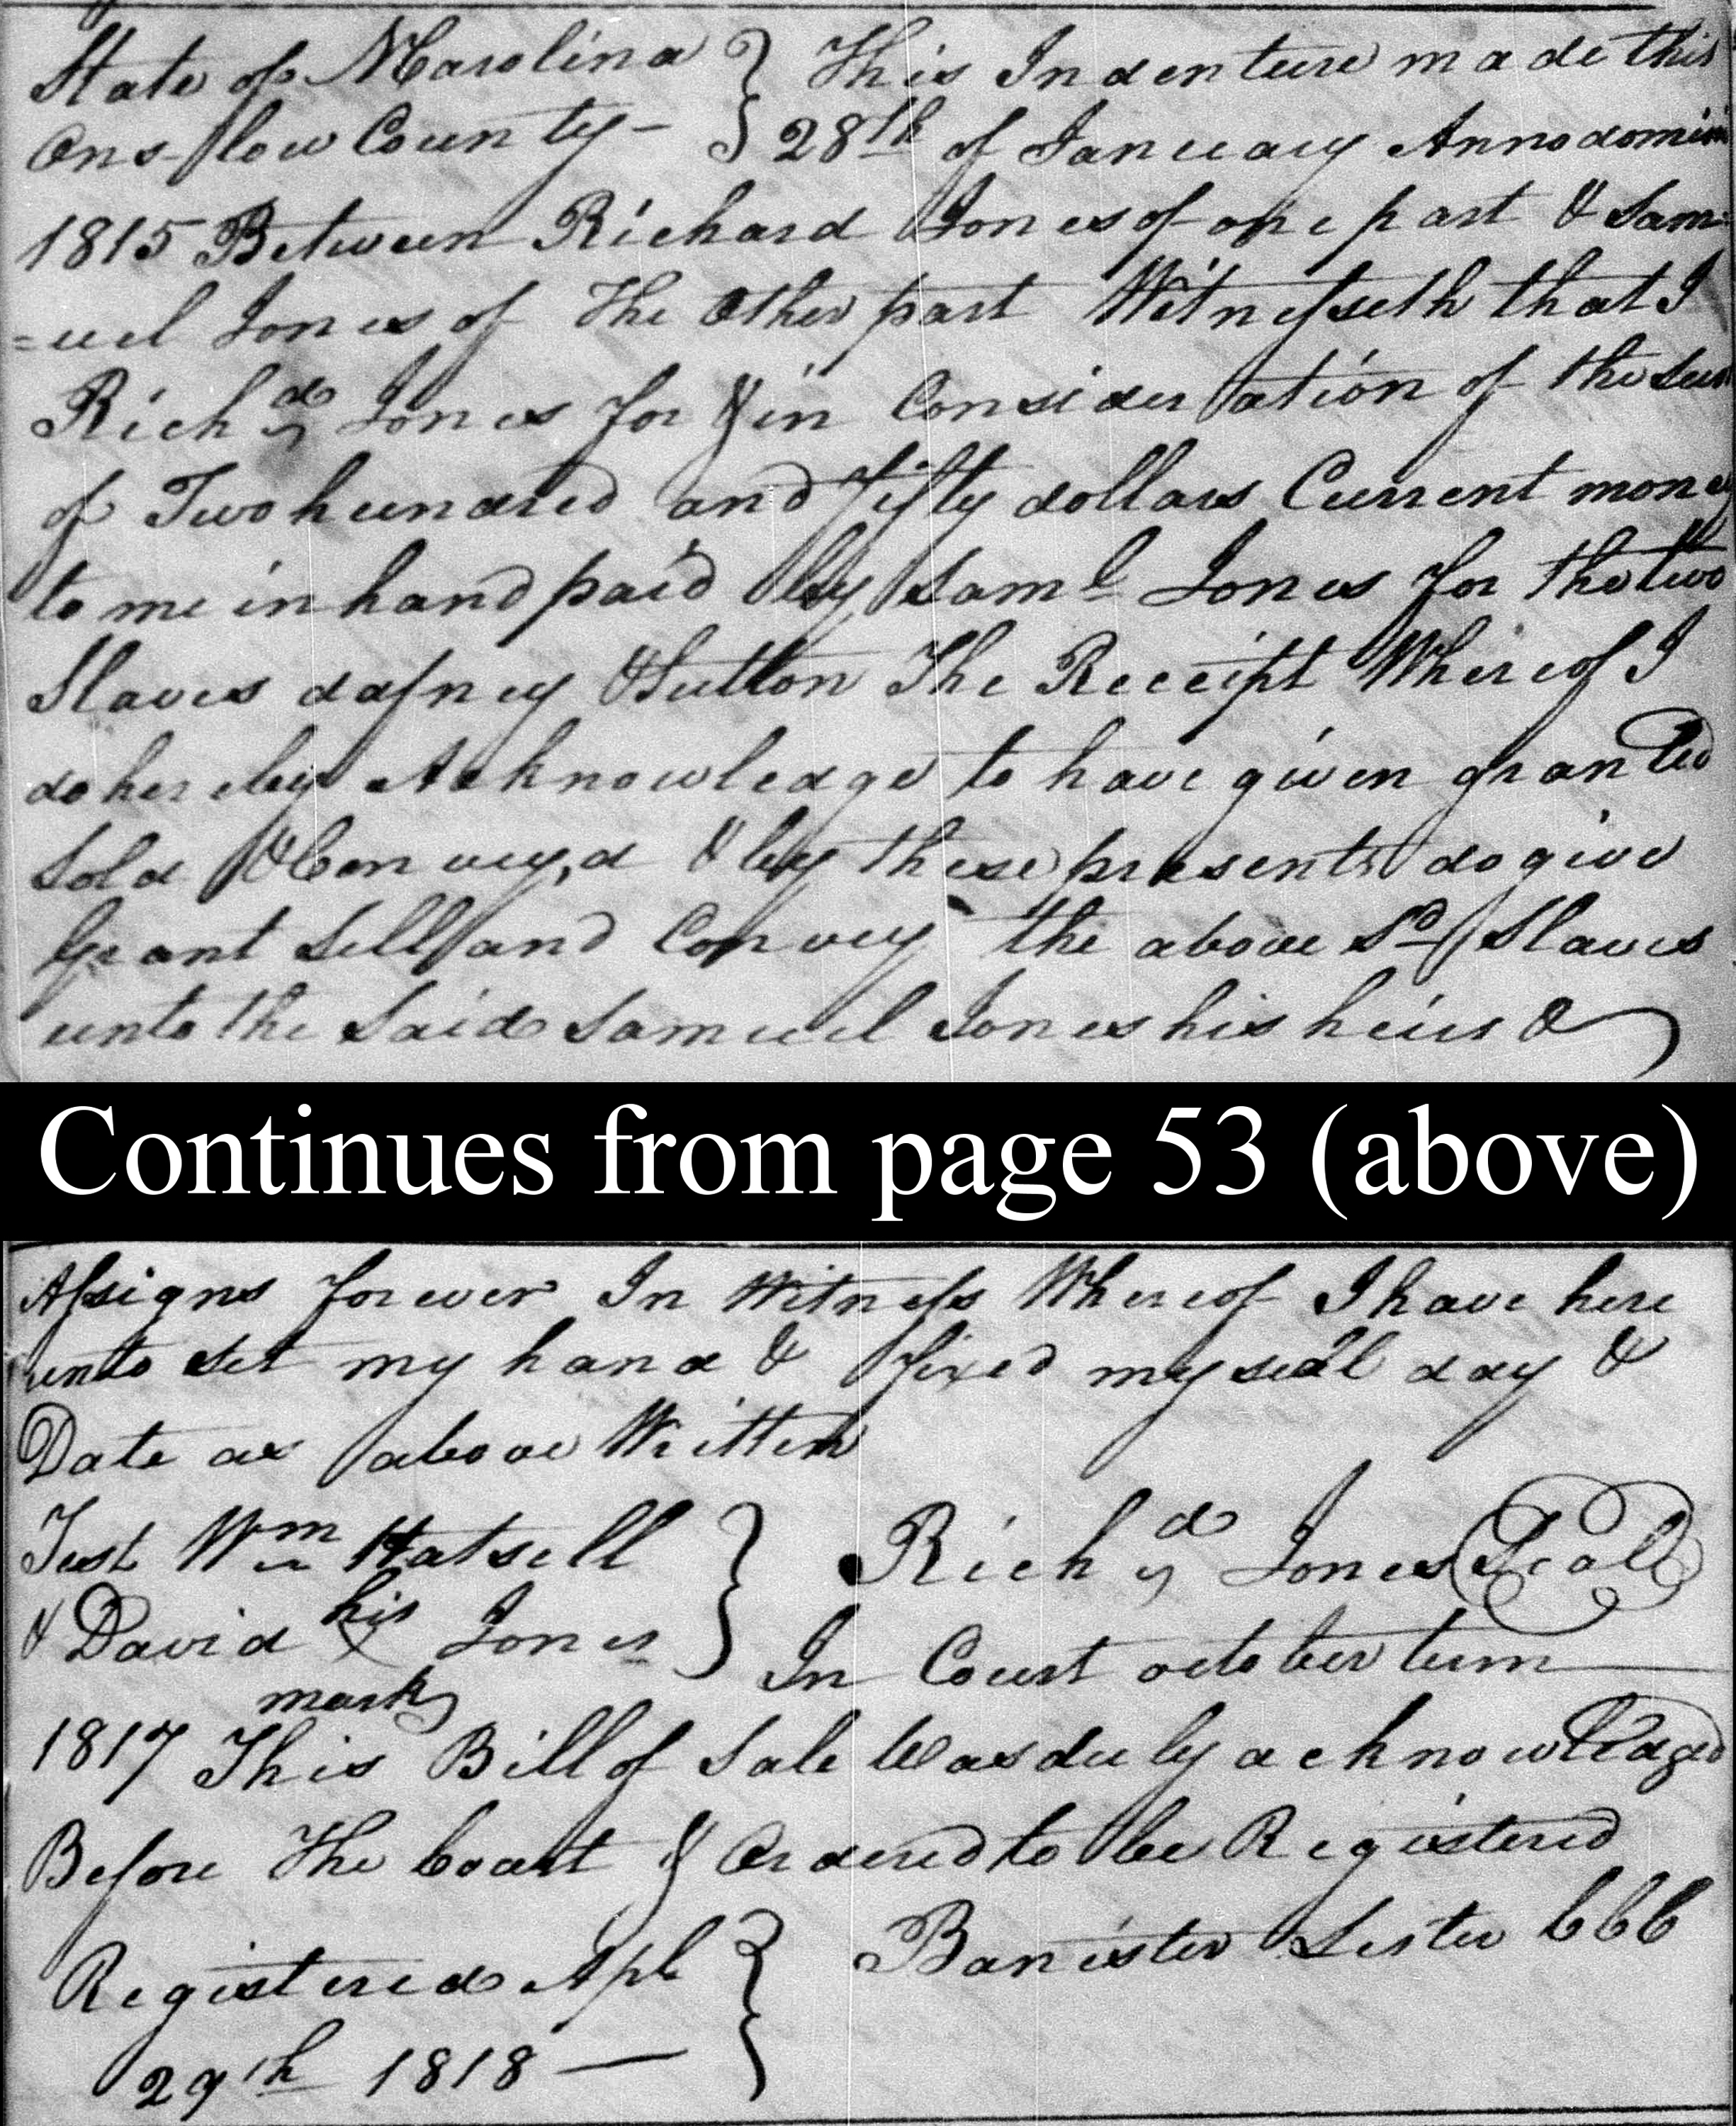 State of N Carolina } This Indenture made this
Onslow County - } 28th of January Annodomini
1815 Between Richard Jones of one part & Sam
=uel Jones of The Other part Witnesseth that I
Richd Jones for & in Consideration of the sum
of Two hundred and fifty dollars Current money
to me in hand paid by Saml Jones for the two
Slaves dafney & Sutton The Receipt Whereof I
do hereby Acknowledge to have given granted
Sold & Convey,d & by these presents do give
Grant Sell and Convey the above Sd Slaves
unto the Said Samuel Jones his heirs &
Continues from page 53 (above)
Assigns forever In Witness Whereof I have here
unto set my hand & fixed my seal day &
Date as above Written
Test Wm Hatsell } Richd Jones Seal
& David his X mark Jones } In Court october term
1817 This Bill of Sale Was duly acknowledged
Before The Court & Ordered to be Registered
Banister Lester CCC
Registered Apl }
29th 1818 — }